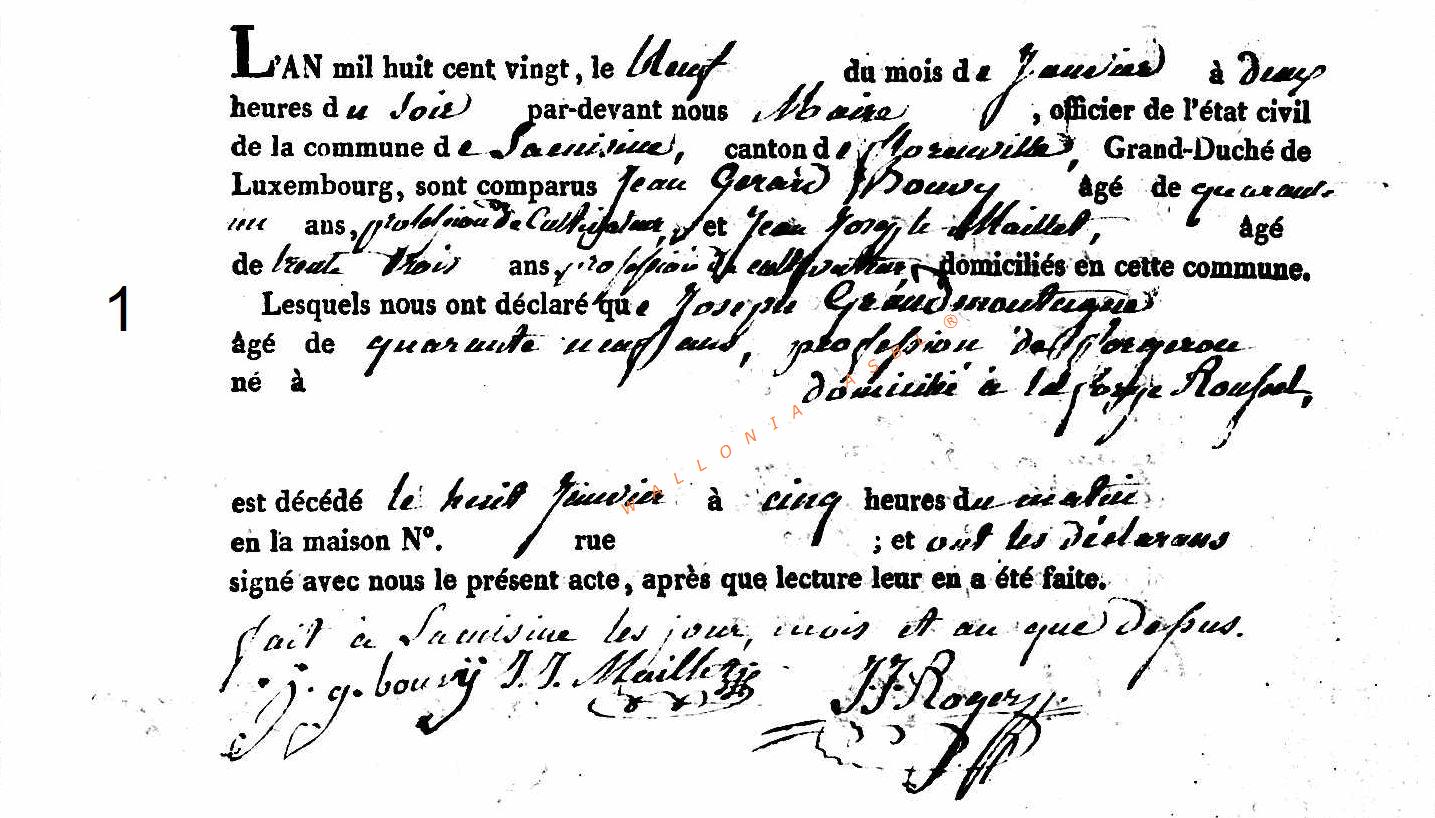 L'AN mil huit cent vingt, le Neuf du mois de Janvier à deux
heures du Soir par-devant nous Maire, officier de l'état civil
de la commune de Lacuisine, canton de florenville, Grand-Duché de
Luxembourg, sont comparus Jean Gerard Bouvy âgé de quarant-
un ans, profession de Cultivateur, et Jean Joseph Maillet, âgé
de trente trois ans, profession de cultivateur, domiciliés en cette commune.
1
Lesquels nous ont déclaré que Joseph Grandmontagne
âgé de quarante neuf ans, profession de forgeron
né à domicilié à la forge Roussel,
est décédé le huit Janvier à cinq heures du matin
en la maison N°. rue ; et ont les déclarans
signé avec nous le présent acte, après que lecture leur en a été faite.
fait à Lacuisine les jour, mois et an que dessus.
J. g. bouvÿ J. J. Maillet J J Roger
WALLONIA ASBL ®